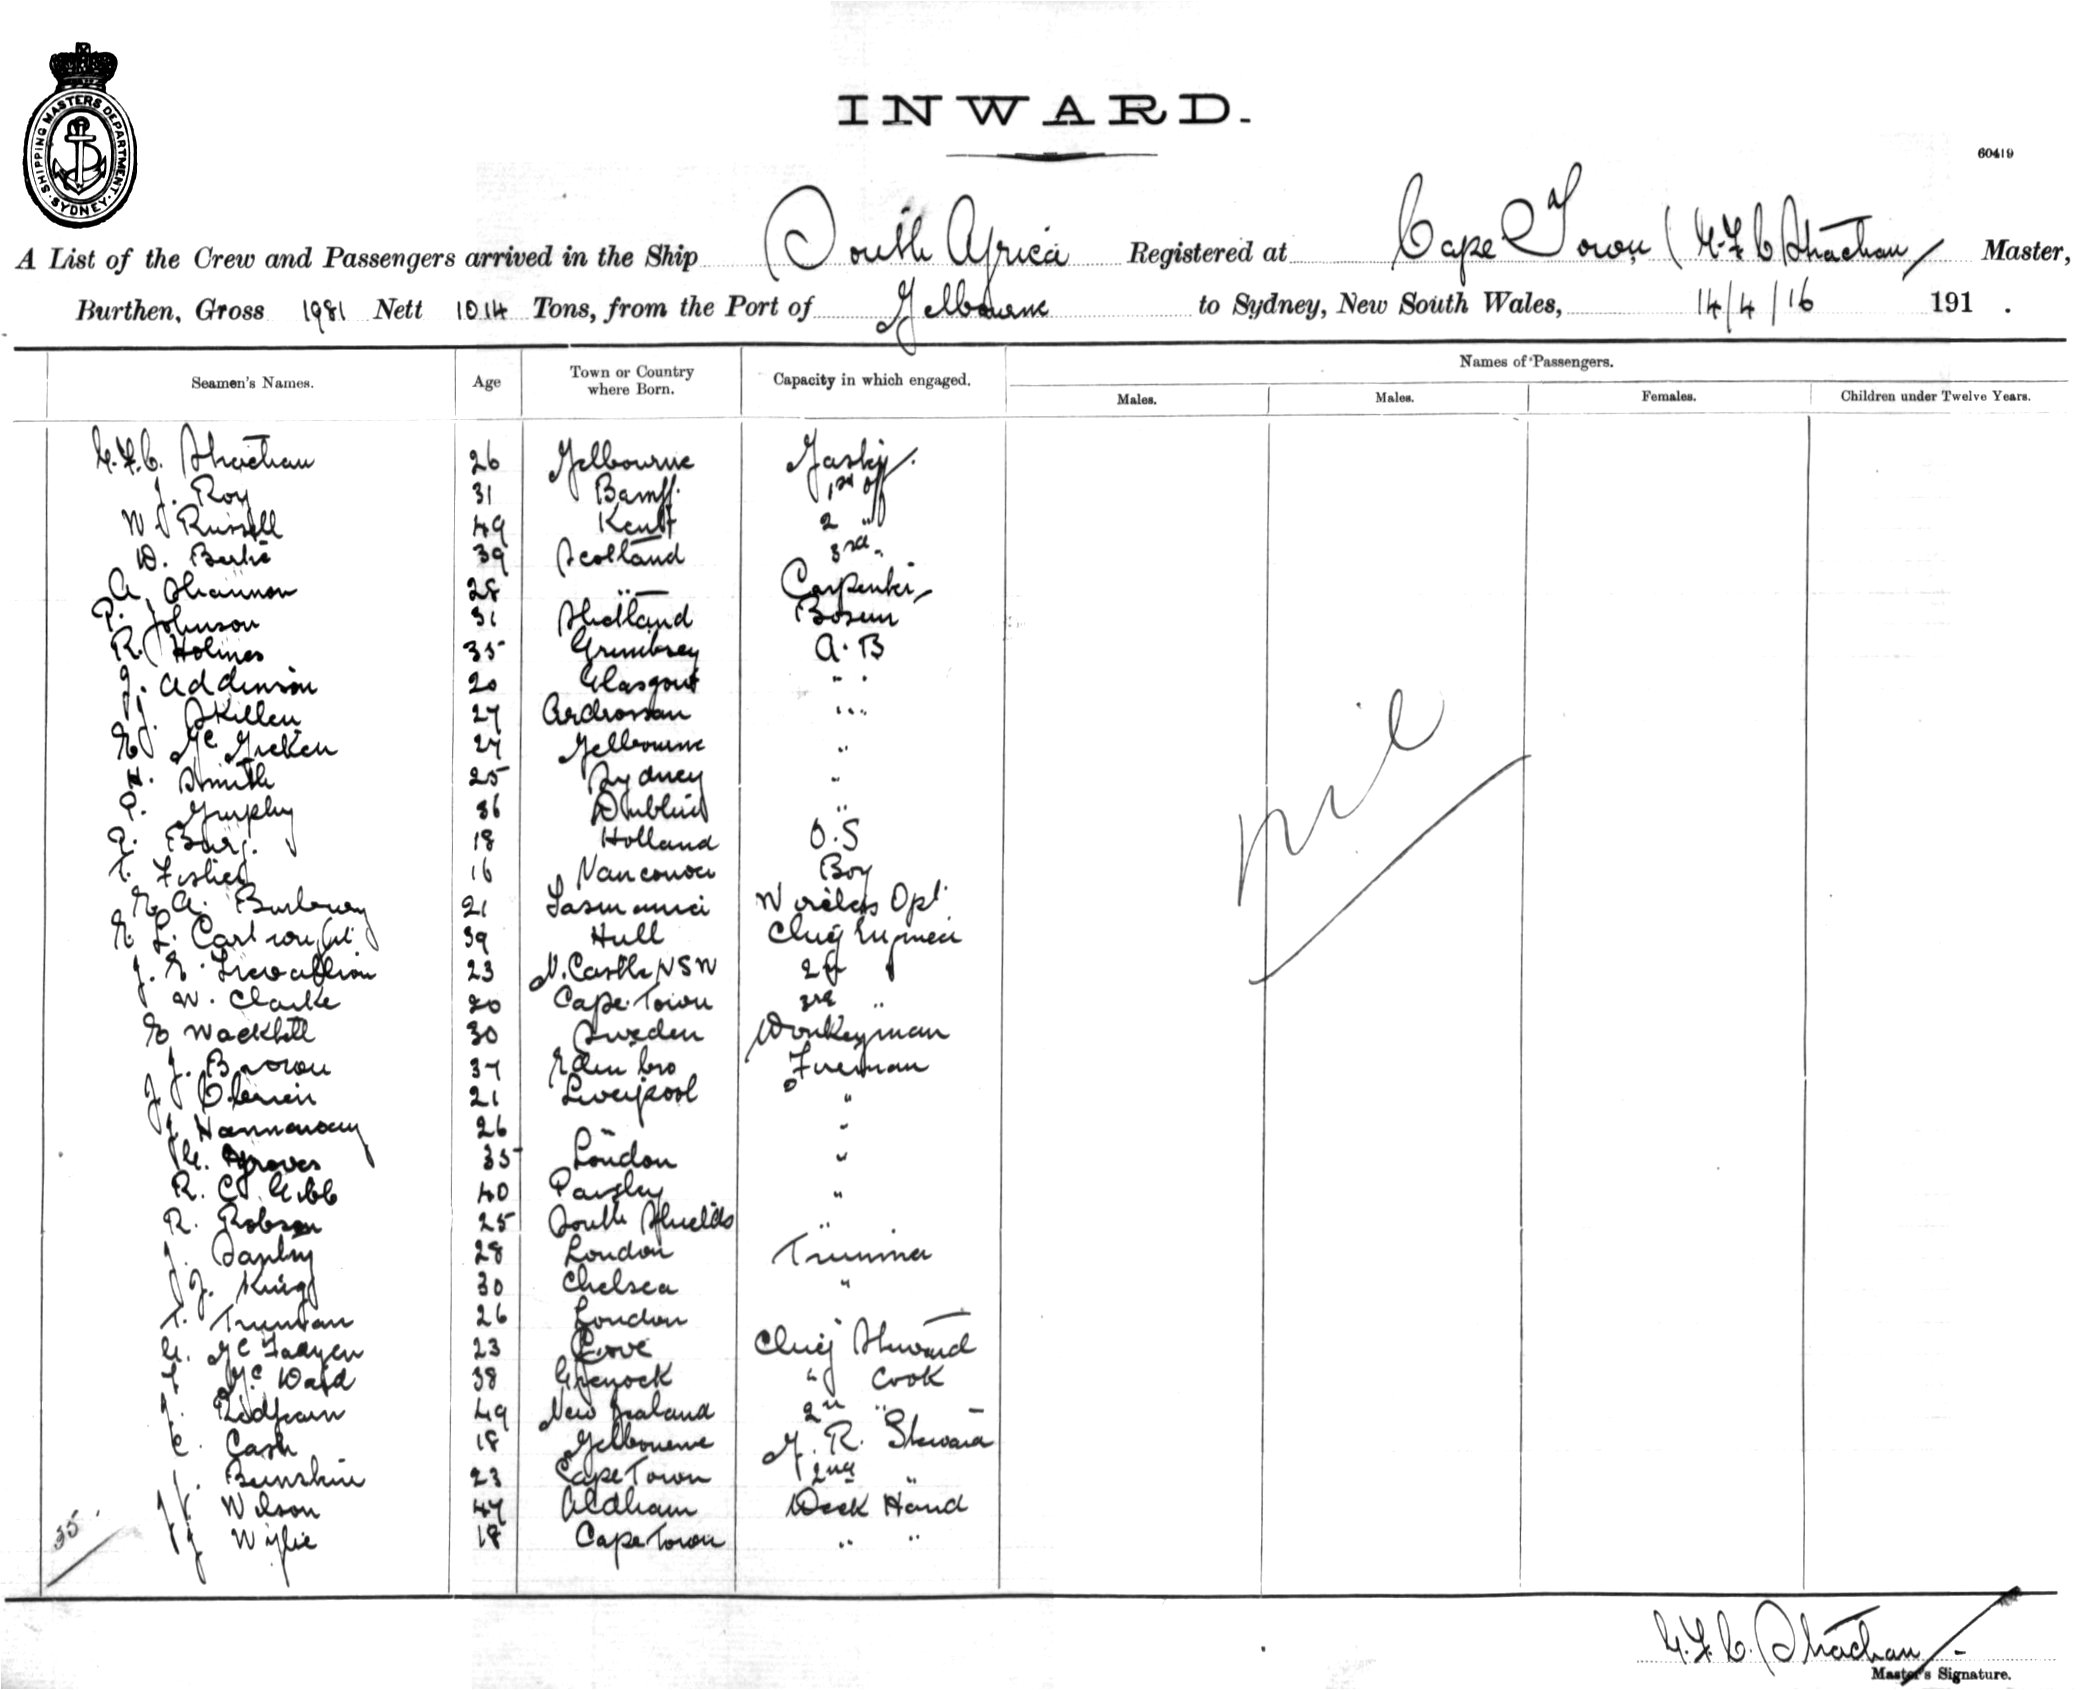 SHIPPING MASTERS DEPARTMENT. SYDNEY.
INWARD.
60419
A List of the Crew and Passengers arrived in the Ship South Africa Registered at Cape Town ( G.F.C Strachan / Master,
Burthen, Gross 1981 Nett 1014 Tons, from the Port of Melbourne to Sydney, New South Wales, 14/4/16 191 .
Seamen's Names. Age Town or Country where Born. Capacity in which engaged. Names of Passengers.
Males. Males. Females. Children under Twelve Years.
G.F.C. Strachan 26 Melbourne Master.
J. Roy 31 Bamff. 1st Off
W. Russell 49 Kent 2 "
D. 39 Scotland 3rd "
A. Shannon 28 " Carpenter
P. Johnson 31 Shetland Bosun
R. Holmes 35 Grimbsey A.B
J. Addinson 20 Glasgow "
J. Skillen 27 Ardrossan "
Mc 27 Melbourne "
H. Smith 25 Sydney "
P. Murphy 36 Dublin "
P. Burg. 18 Holland O.S
T. Fisher 16 Vancouver Boy
E. A. Burbury 21 Tasmania Wireless Opt.
E. L. Cartwright 39 Hull Chief Engineer
J. E. Trevallion 23 N. Castle NSW 2d "
W. Clarke 20 Cape Town 3rd "
E 30 Sweden Donkeyman
J. Brown 37 Edinbro Fireman
J O'Brien 21 Liverpool "
J Hannaway 26 " "
G. Groves 35 London "
R. C. Gibb 40 Paisley "
R. Robson 25 South Shields "
J. 28 London Trimmer
J. King 30 Chelsea "
T. Truman 26 London
G. McFadyen 23 Cove Chief Steward
Mc Daid 38 Greenock " Cook
J. Redfearn 49 New Zealand 2nd "
C. Cash 18 Melbourne M. R. Steward
J. Bunshin 23 Cape Town 2nd "
J. Wilson 47 Oldham Deck Hand
J Wylie 18 Cape Town " "
nil
35
G.F.C. Strachan
Master's Signature.